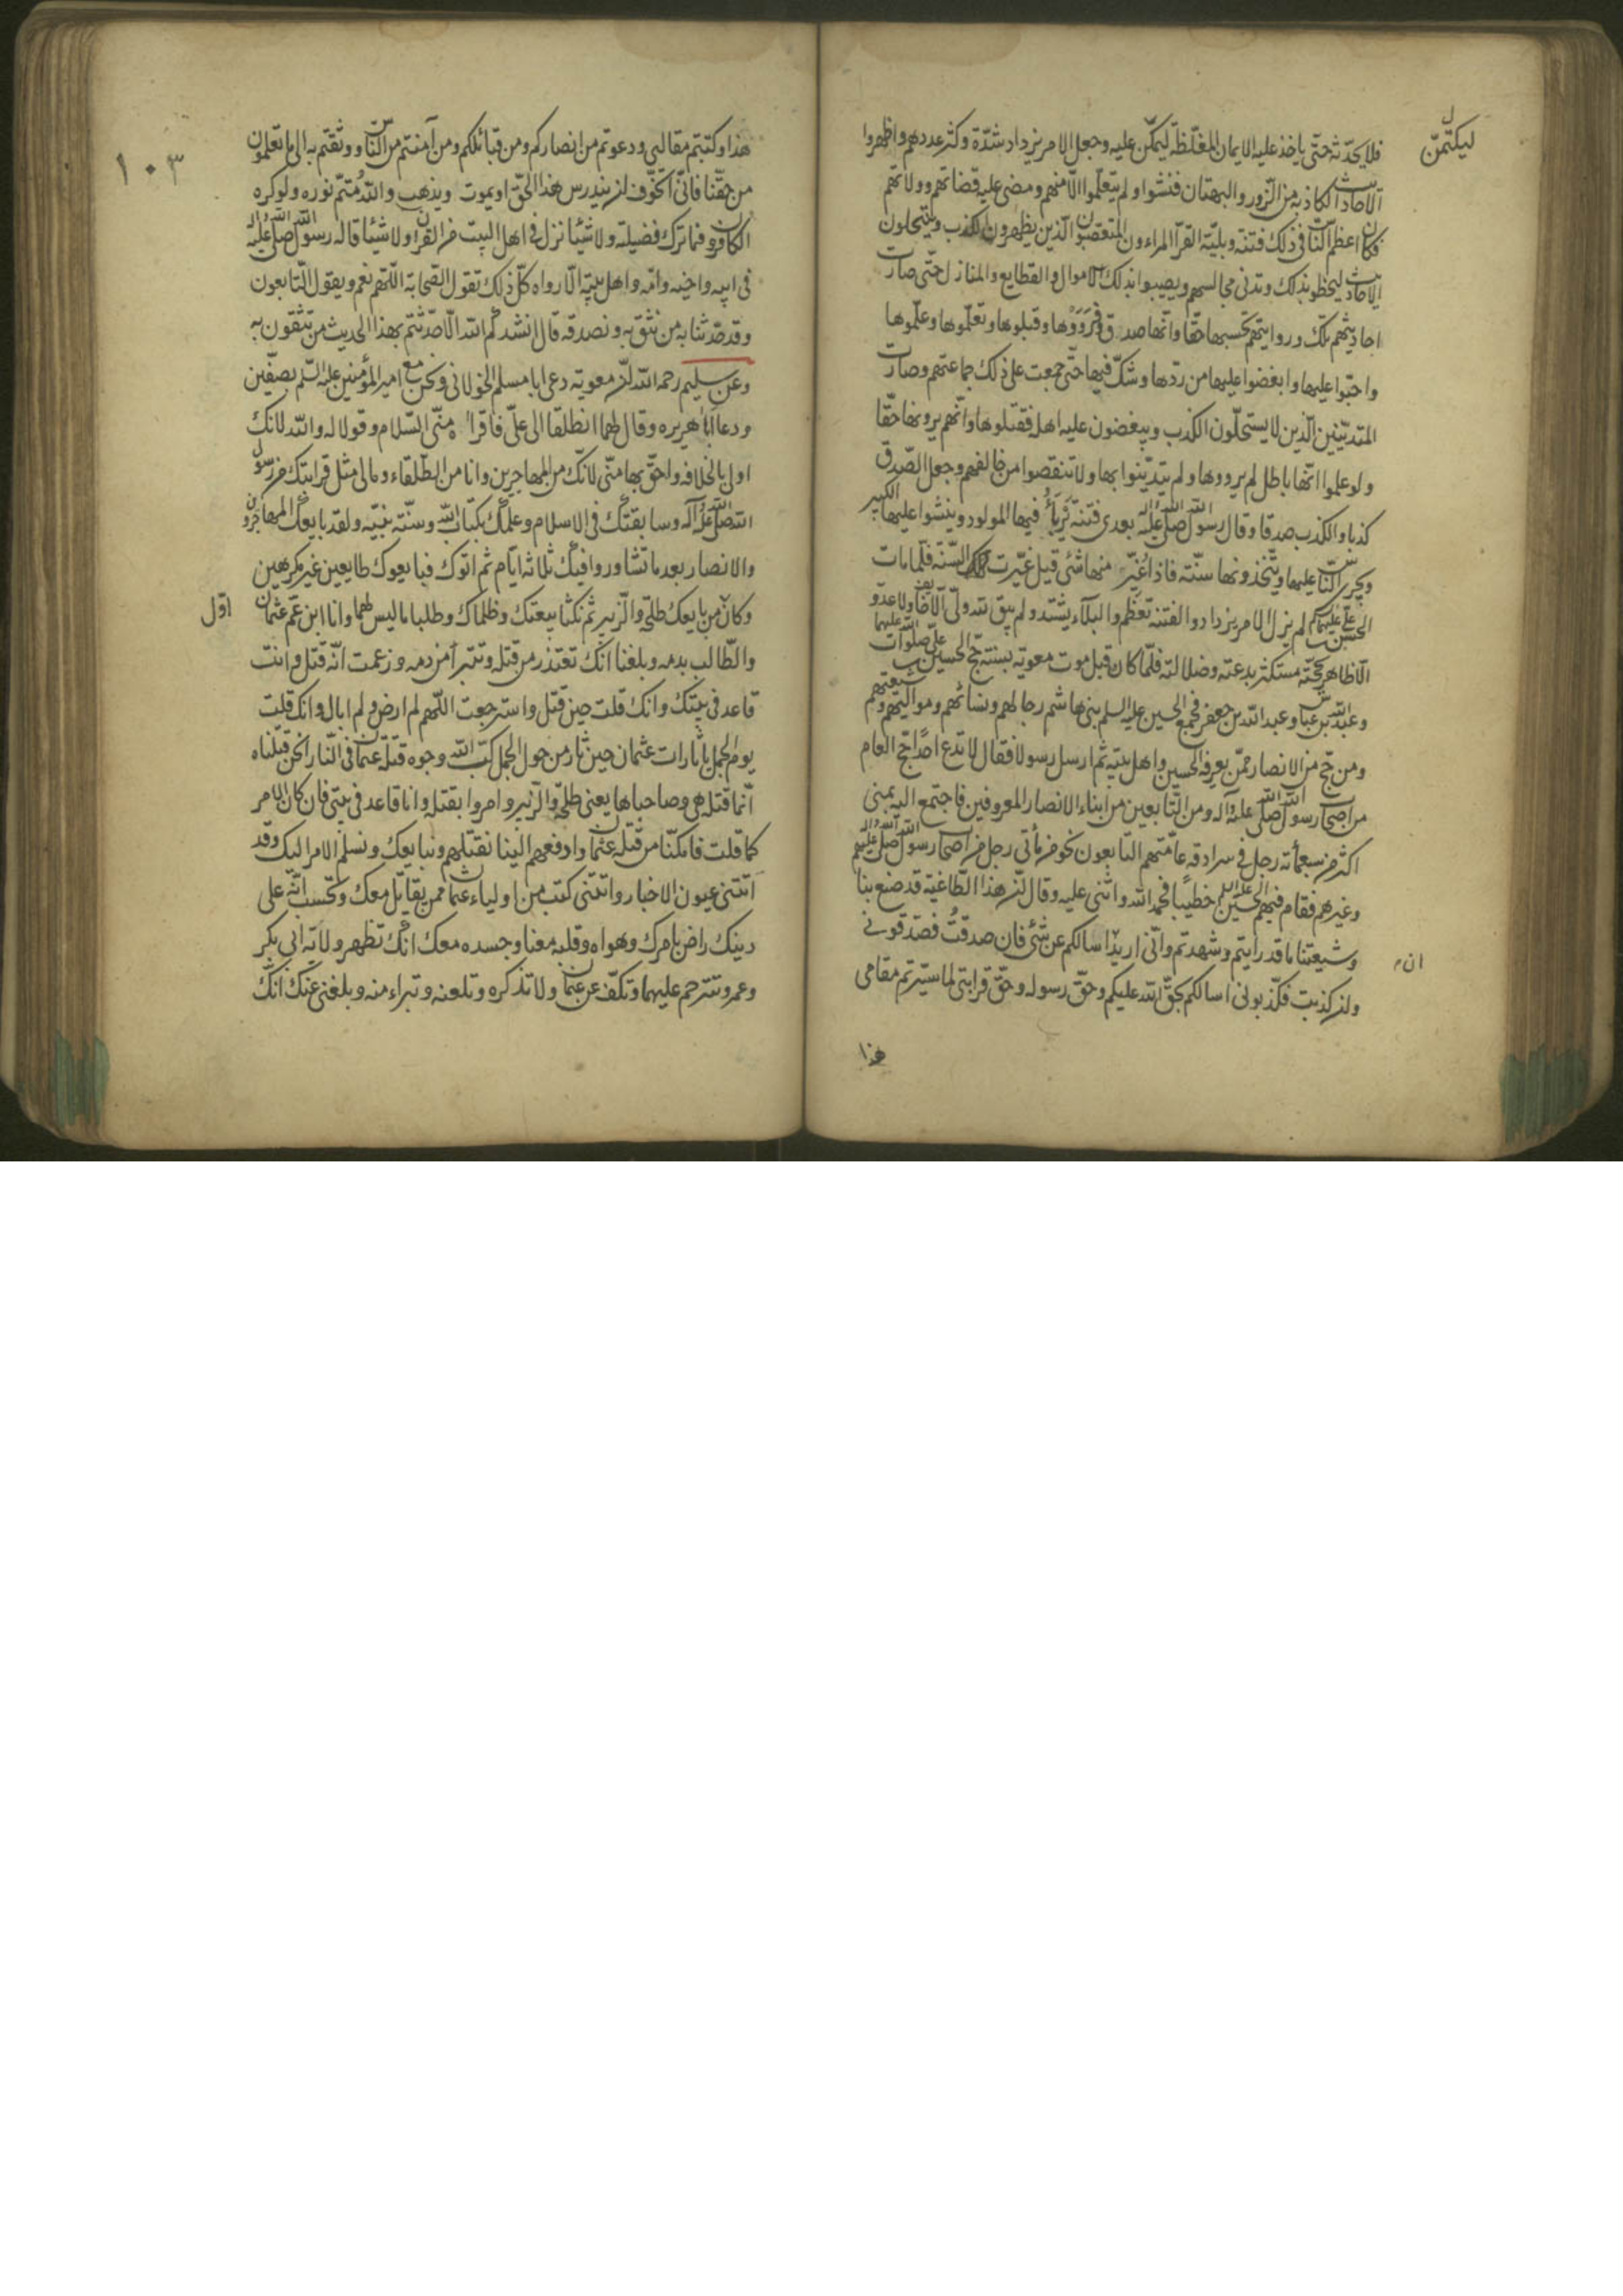 ليكتمنّ
فلا يحدّثه حتّى ياخذ عليه الايمان المغلّظة ليكتمنّ عليه وجعل الامر يزداد شدّة وكثر عددهم واظهروا
الاحاديث الكاذبة من الزّور والبهتان فنشوا ولم يتعلّموا الّا منهم ومضى عليه قضاتهم وولاتهم
فكان اعظم النّاس فى ذلك فتنة وبليّة القرّا المراءون المتصنعون الّذين يظهرون الكذب وينتحلون
الاحاديث ليحظوا بذلك وتدنى مجالسهم ويصيبوا بذلك الاموال والقطايع والمنازل حتّى صارت
احاديثهم تلك ورواياتهم تحسبها حقّا وانّها صدق فرووها وقبلوها وتعلّموها وعلّموها
واحبّوا عليها وابغضوا عليها من ردّها وشكّ فيها حتّى جمعت على ذلك جماعتهم وصارت
المتديّنين الّذين لا يستحلّون الكذب ويبغضون عليه اهله فقبلوها وانّهم يرونها حقّا
ولو علموا انّها باطل لم يرووها ولم يتديّنوا بها ولا تنقصوا من خالفهم وجعل الصّدق
كذبا والكذب صدقا وقال رسول الله صلى الله عليه وآله بعدى فتنة يربأ فيها المولود وينشوا عليها الكبير
ويجرى النّاس عليها ويتّخذونها سنّة فاذا غيّر منها شئ قيل غيّرت السّنّة فلمّا مات
الحسن بن علىّ عليهما السلام لم يزل الامر يزداد والفتنة تعظم والبلاء يشتدّ ولم يبق لله ولىّ الّا خائف ولا عدو
الّا ظاهر بحجّته مستكثر ببدعته وضلالته فلمّا كان قبل موت معوية بسنة حجّ الحسين بن علىّ صلوات الله عليهما
وعبد الله بن عبّاس وعبد الله بن جعفر فجمع الحسين عليه السلم بنى هاشم رجالهم ونسائهم ومواليهم وشيعتهم
ومن حجّ من الانصار ممّن يعرفه الحسين واهل بيته ثم ارسل رسولا فقال لا تدع احدًا حجّ العام
من اصحاب رسول الله صلى الله عليه وآله ومن التّابعين من ابناء الانصار المعروفين فاجتمع اليه بمنى
اكثر من سبعمأته رجل فى سرادقه عامّتهم التابعون نحو من مأتى رجل من اصحاب رسول الله صلى الله عليه وآله
وغيرهم فقام فيهم الحسين عليه السلم خطيبًا فحمد الله واثنى عليه وقال انّ هذا الطّاغية قد صنع بنا
وشيعتنا ما قد رايتم وشهدتم وانّى اريد ان اسالكم عن شئ فان صدقتُ فصدّقونى
ان
وان كذبت فكذّبونى اسالكم بحقّ الله عليكم وحقّ رسوله وحقّ قرابتى لما سيّرتم مقامى
هذا
١٠٣
هذا وكتبتم مقالتى ودعوتم من انصاركم ومن قبائلكم ومن آمنتم من النّاس ووثقتم به الى ما تعلمون
من حقّنا فانّى اتخوّف ان يندرس هذا الحقّ او يموت ويذهب والله متمّ نوره ولو كره
الكافرون فما ترك فضيلة ولا شيئا نزل فى اهل البيت من القرآن ولا شيئا قاله رسول الله صلى الله عليه وآله
فى ابيه واخيه وامّه واهل بيته الّا رواه كلّ ذلك تقول الصّحابة اللّهم نعم ويقول التّابعون
وقد حدّثنا به من نثق به ونصدقه قال انشدكم الله الّا حدّثتم بهذا الحديث من تثقون به
وعن سليم رحمه الله انّ معوية دعى ابا مسلم الخولانى ونحن مع امير المؤمنين عليه السّلم بصفّين
ودعا ابا هريره وقال لهما انطلقا الى علىّ فاقرأه منّى السّلام وقولا له والله لانك
اولى بالخلافه واحقّ بها منّى لانّك من المهاجرين وانا من الطّلقاء وما لى مثل قرابتك من رسول
الله صلى الله عليه وآله وسابقتك فى الاسلام وعلمك بكتاب الله وسنّة نبيّه ولقد بايعك المهاجرون
والانصار بعد ما تشاوروا فيك ثلاثه ايّام ثم اتوك فبايعوك طايعين غير مكرهين
وكان من بايعك طلحة والزّبير ثم نكثا بيعتك وظلماك وطلبا ما ليس لهما وانا ابن عمّ عثمان
اوّل
والطّالب بدمه وبلغنا انّك تعتذر من قتله وتتبرأ من دمه وزعمت انّه قتل وانت
قاعد فى بيتك وانك قلت حين قتل واسترجعت اللّهم لم ارض ولم ابال وانك قلت
يوم الجمل يا لثارات عثمان حين ثار من حول الجمل كبّ الله وجوه قتلة عثمان فى النّار انحن قتلناه
انّما قتله هى وصاحباها يعنى طلحة والزّبير وامروا بقتله وانا قاعد فى بيتى فان كان الامر
كما قلت فامكنّا من قتلة عثمان وادفعهم الينا نقتلهم ونبايعك ونسلم الامر اليك وقد
اتتنى عيون الاخبار واتتنى كتب من اولياء عثمان ممن يقاتل معك وتحسب انّه على
دينك راض بامرك وهواه وقلبه معنا وجسده معك انّك تظهر ولاية ابى بكر
وعمر وتترحم عليهما وتكفّ عن عثمان ولا تذكره وتلعنه وتبراء منه وبلغنى عنك انّك